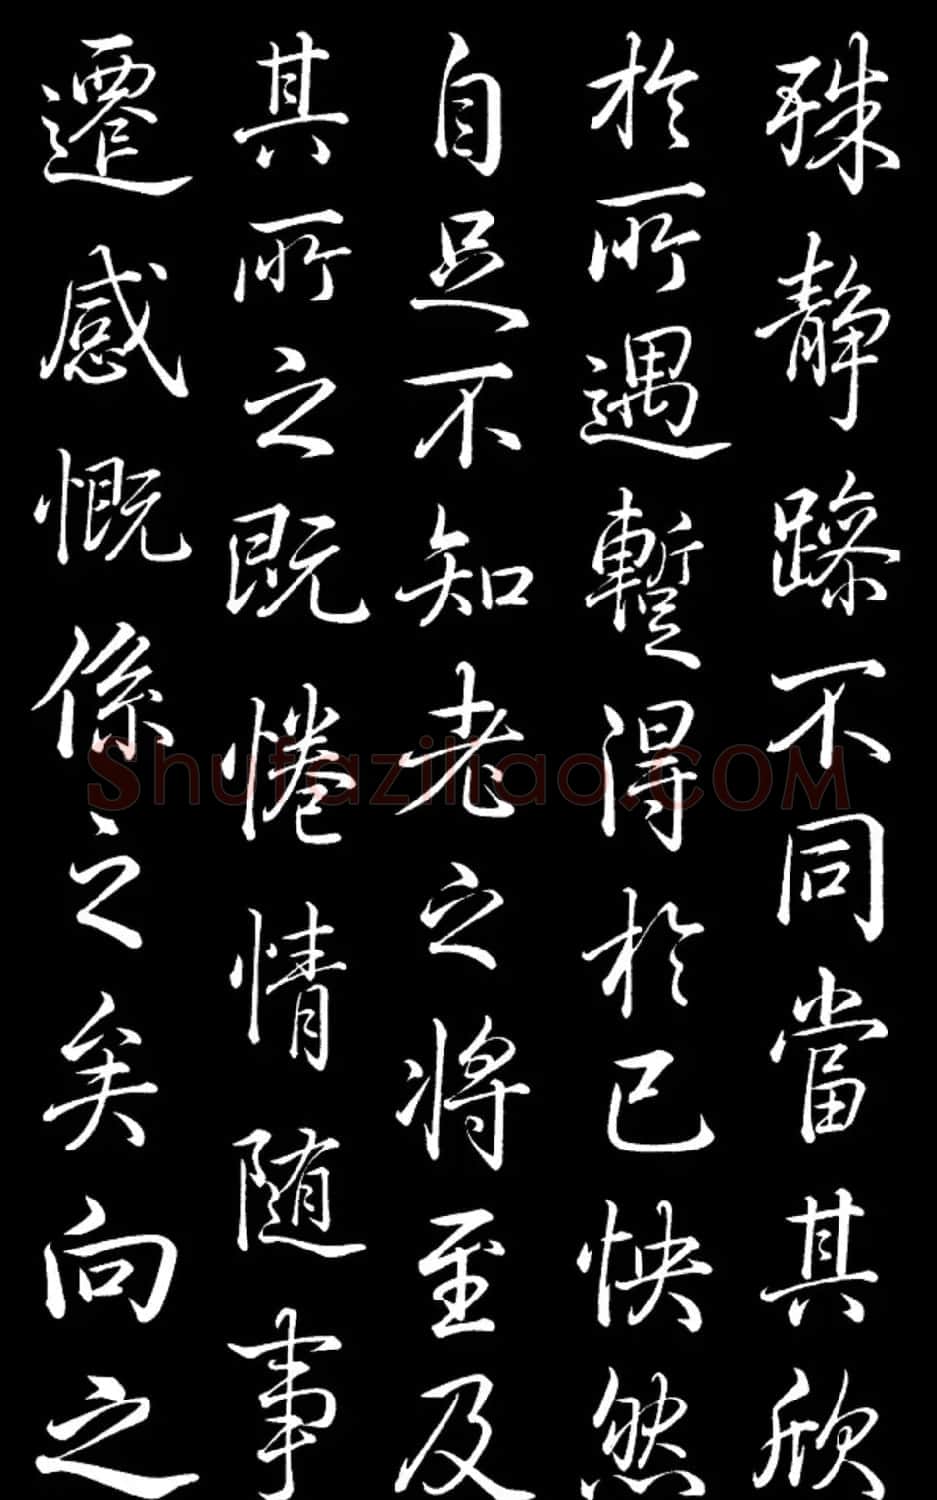 殊静躁不同當其欣
於所遇暫得於己快然
自足不知老之將至及
其所之既惓情随事
遷感慨係之矣向之
Shufaziliao.COM